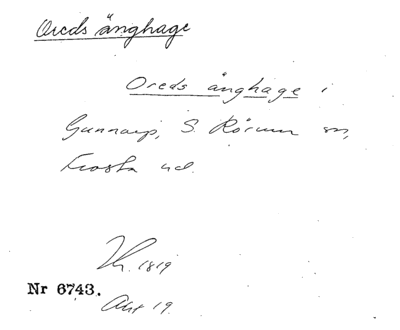 Oreds änghage
Oreds änghage i
Gunnarp, S. Rörum sn,
Frosta hd.
1819
Nr 6743.
Akt 19.